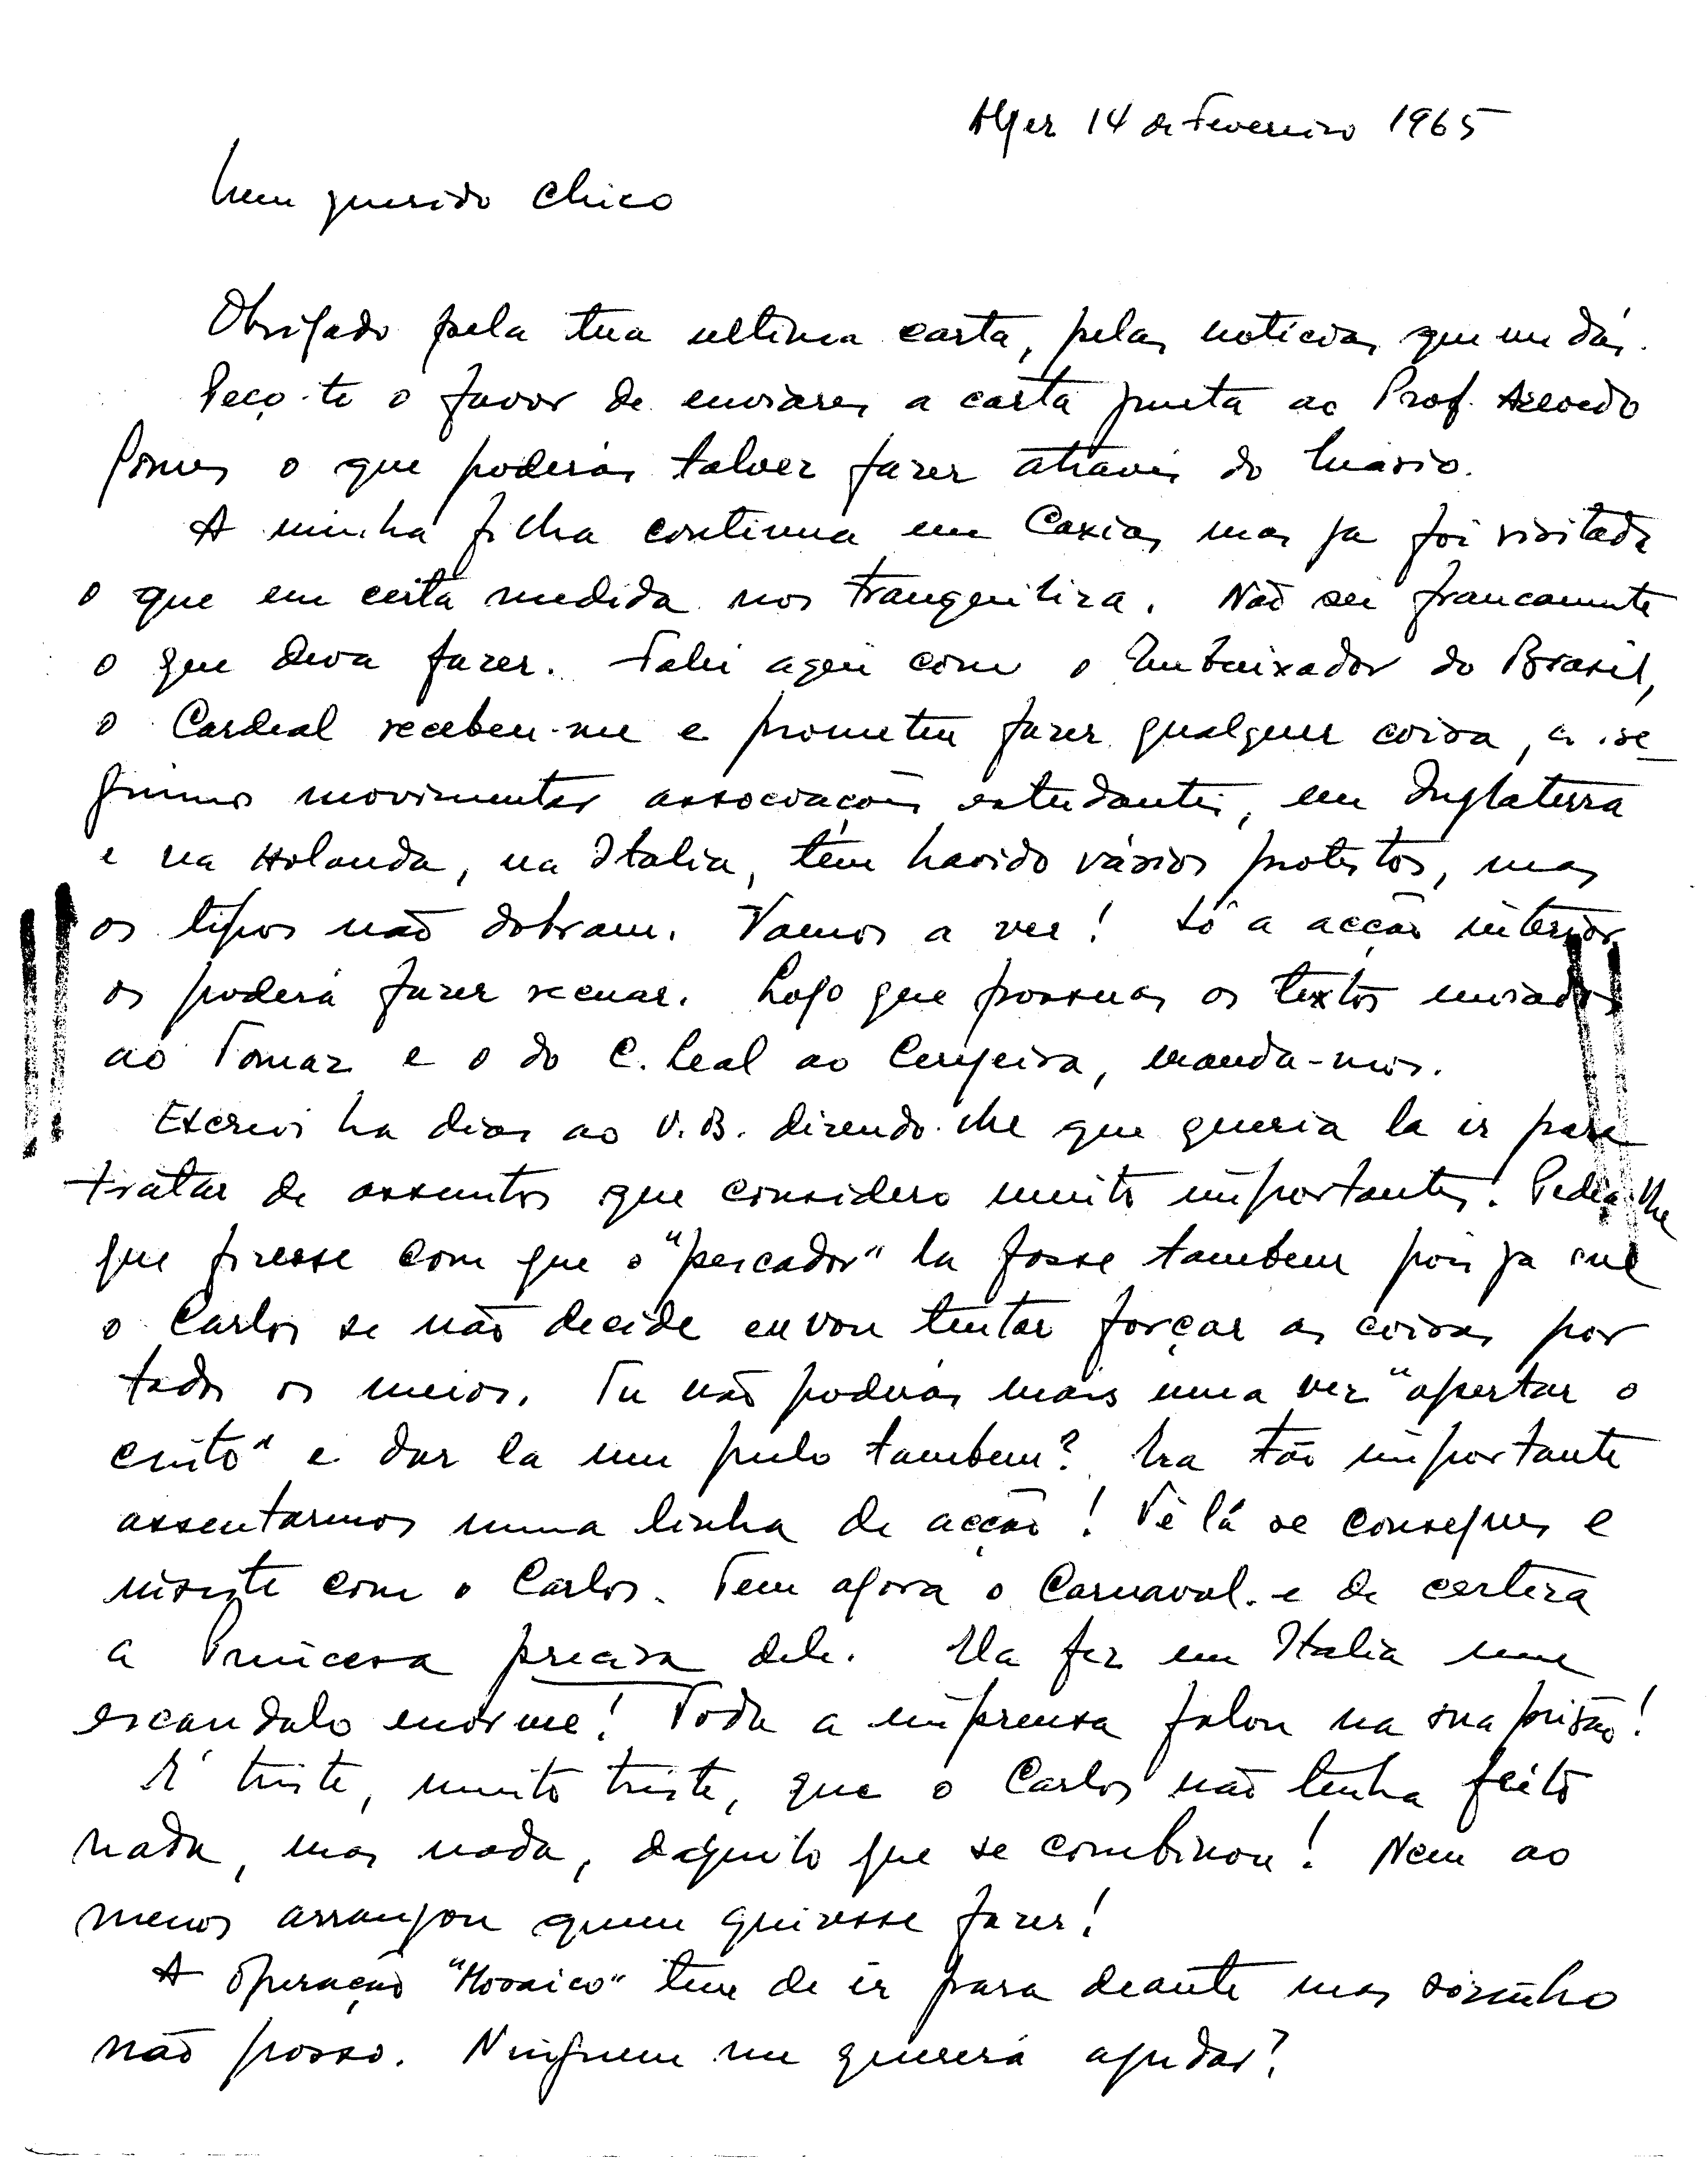 Alger 14 de Fevereiro 1965
Meu querido Chico
Obrigado pela tua ultima carta, pelas noticias que me dás.
Peço-te o favor de enviares a carta junta ao Prof. Azevedo
Gomes o que poderás talvez fazer através do Mário.
A minha filha continua em Caxias mas ja foi visitada
o que em certa medida nos tranquiliza. Não sei francamente
o que deva fazer. Falei aqui com o Embaixador do Brasil,
o Cardeal recebeu-me e prometeu fazer qualquer coisa,
movimentar associações estudantis, em Inglaterra
e na Holanda, na Italia, têm havido vários protestos, mas
os tipos não dobram. Vamos a ver! Só a acção interior
os poderá fazer recuar. Logo que possuas os textos enviados
ao Tomaz e o do C. Leal ao Cerejeira, manda-nos.
Escrevi ha dias ao V.B. dizendo-lhe que queria la ir para
tratar de assuntos que considero muito importantes. Pedia-lhe
que fizesse com que o "pescador" la fosse tambem pois ja que
o Carlos se não decide eu vou tentar forçar as coisas por
todos os meios. Tu não poderás mais uma vez "apertar o
cinto" e dar la um pulo tambem? Era tão importante
assentarmos numa linha de acção! Vê lá se consegues e
insiste com o Carlos. Tem agora o Carnaval e de certeza
a Princesa precisa dele. Ela fez em Italia um
escandalo enorme! Toda a imprensa falou na sua prisão!
É triste, muito triste, que o Carlos não tenha feito
nada, mas nada, daquilo que se combinou! Nem ao
menos arranjou quem quizesse fazer!
A operação "Mosaico" tem de ir para deante mas sózinho
não posso. Ninguem me quererá ajudar?